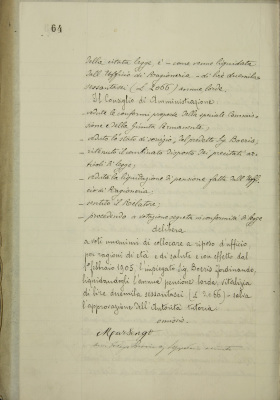 64
della citata legge, è - come venne liquidata
dall'Ufficio di Ragioneria - di lire duemila
sessantasei (L 2066) annue lorde.
Il Consiglio di Amministrazione
- vedute le conformi proposte della speciale Commis-
sione e della Giunta Permanente;
- veduto lo stato di servizio, del predetto Sig. Berio;
- ritenuto il combinato disposto dei precitati ar-
ticoli di legge;
- veduta la liquidazione di pensione fatta dall'Uffi-
cio di Ragioneria;
- sentito il Relatore;
- procedendo a votazione segreta in conformità di legge
delibera
a voti unanimi di collocare a riposo d'ufficio
per ragioni di età e di salute e con effetto dal
1° febbraio 1905, l'impiegato Sig. Berio Ferdinando,
liquidandogli l'annua pensione lorda vitalizia
di lire duemila sessantasei (L 2066) - salva
l'approvazione dell'Autorità tutoria.
omissis